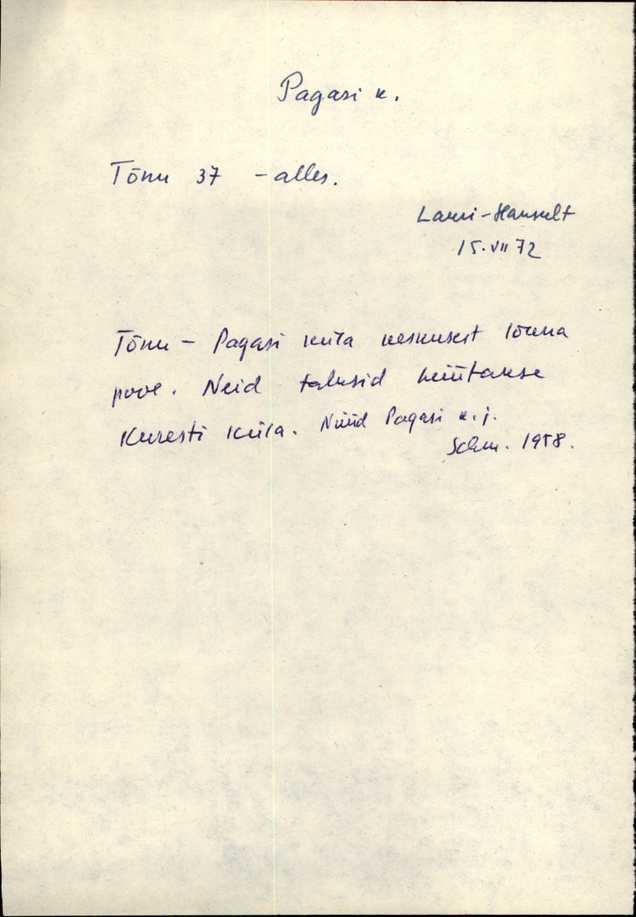 Pagasi k.
Tõnu 37 - alles.
Lauri-Hansult
15. VII 72
Tõnu - Pagasi küla keskusest lõuna
pool. Neid talusid hüütakse
Kuresti küla. Nüüd Pagasi k.j.
Schm. 1958.